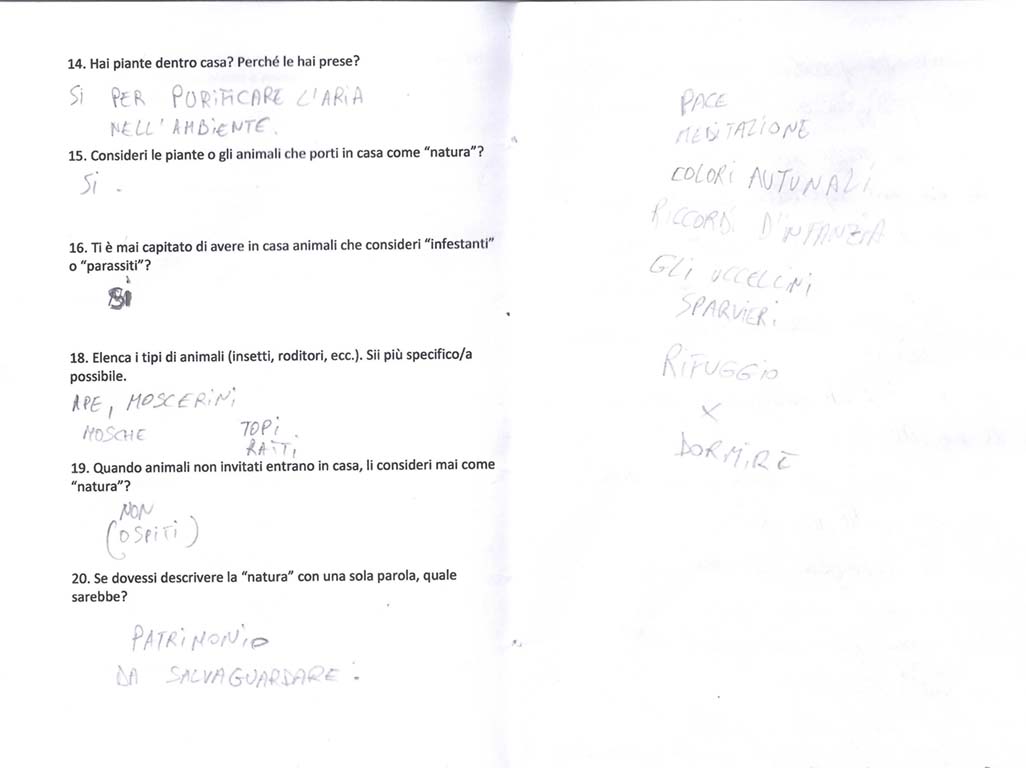 14. Hai piante dentro casa? Perché le hai prese?
Si PER PURiFiCARE L'ARiA
NELL'AMBiENTE.
15. Consideri le piante o gli animali che porti in casa come “natura”?
Si .
16. Ti è mai capitato di avere in casa animali che consideri “infestanti”
o “parassiti”?
Si
18. Elenca i tipi di animali (insetti, roditori, ecc.). Sii più specifico/a
possibile.
APE, MOSCERiNi
MOSCHE TOPi.
RATTi
19. Quando animali non invitati entrano in casa, li consideri mai come
“natura”?
NON
(OSPiTi)
20. Se dovessi descrivere la “natura” con una sola parola, quale
sarebbe?
PATRiMONiO
DA SALVAGUARDARE.
PACE
MEDiTAZIONE
COLORi AUTUNALi
RiCCORDi D'INFANZiA
GLi UCCELLiNi
SPARVIERi
RiFUGGiO
X
DORMiRE